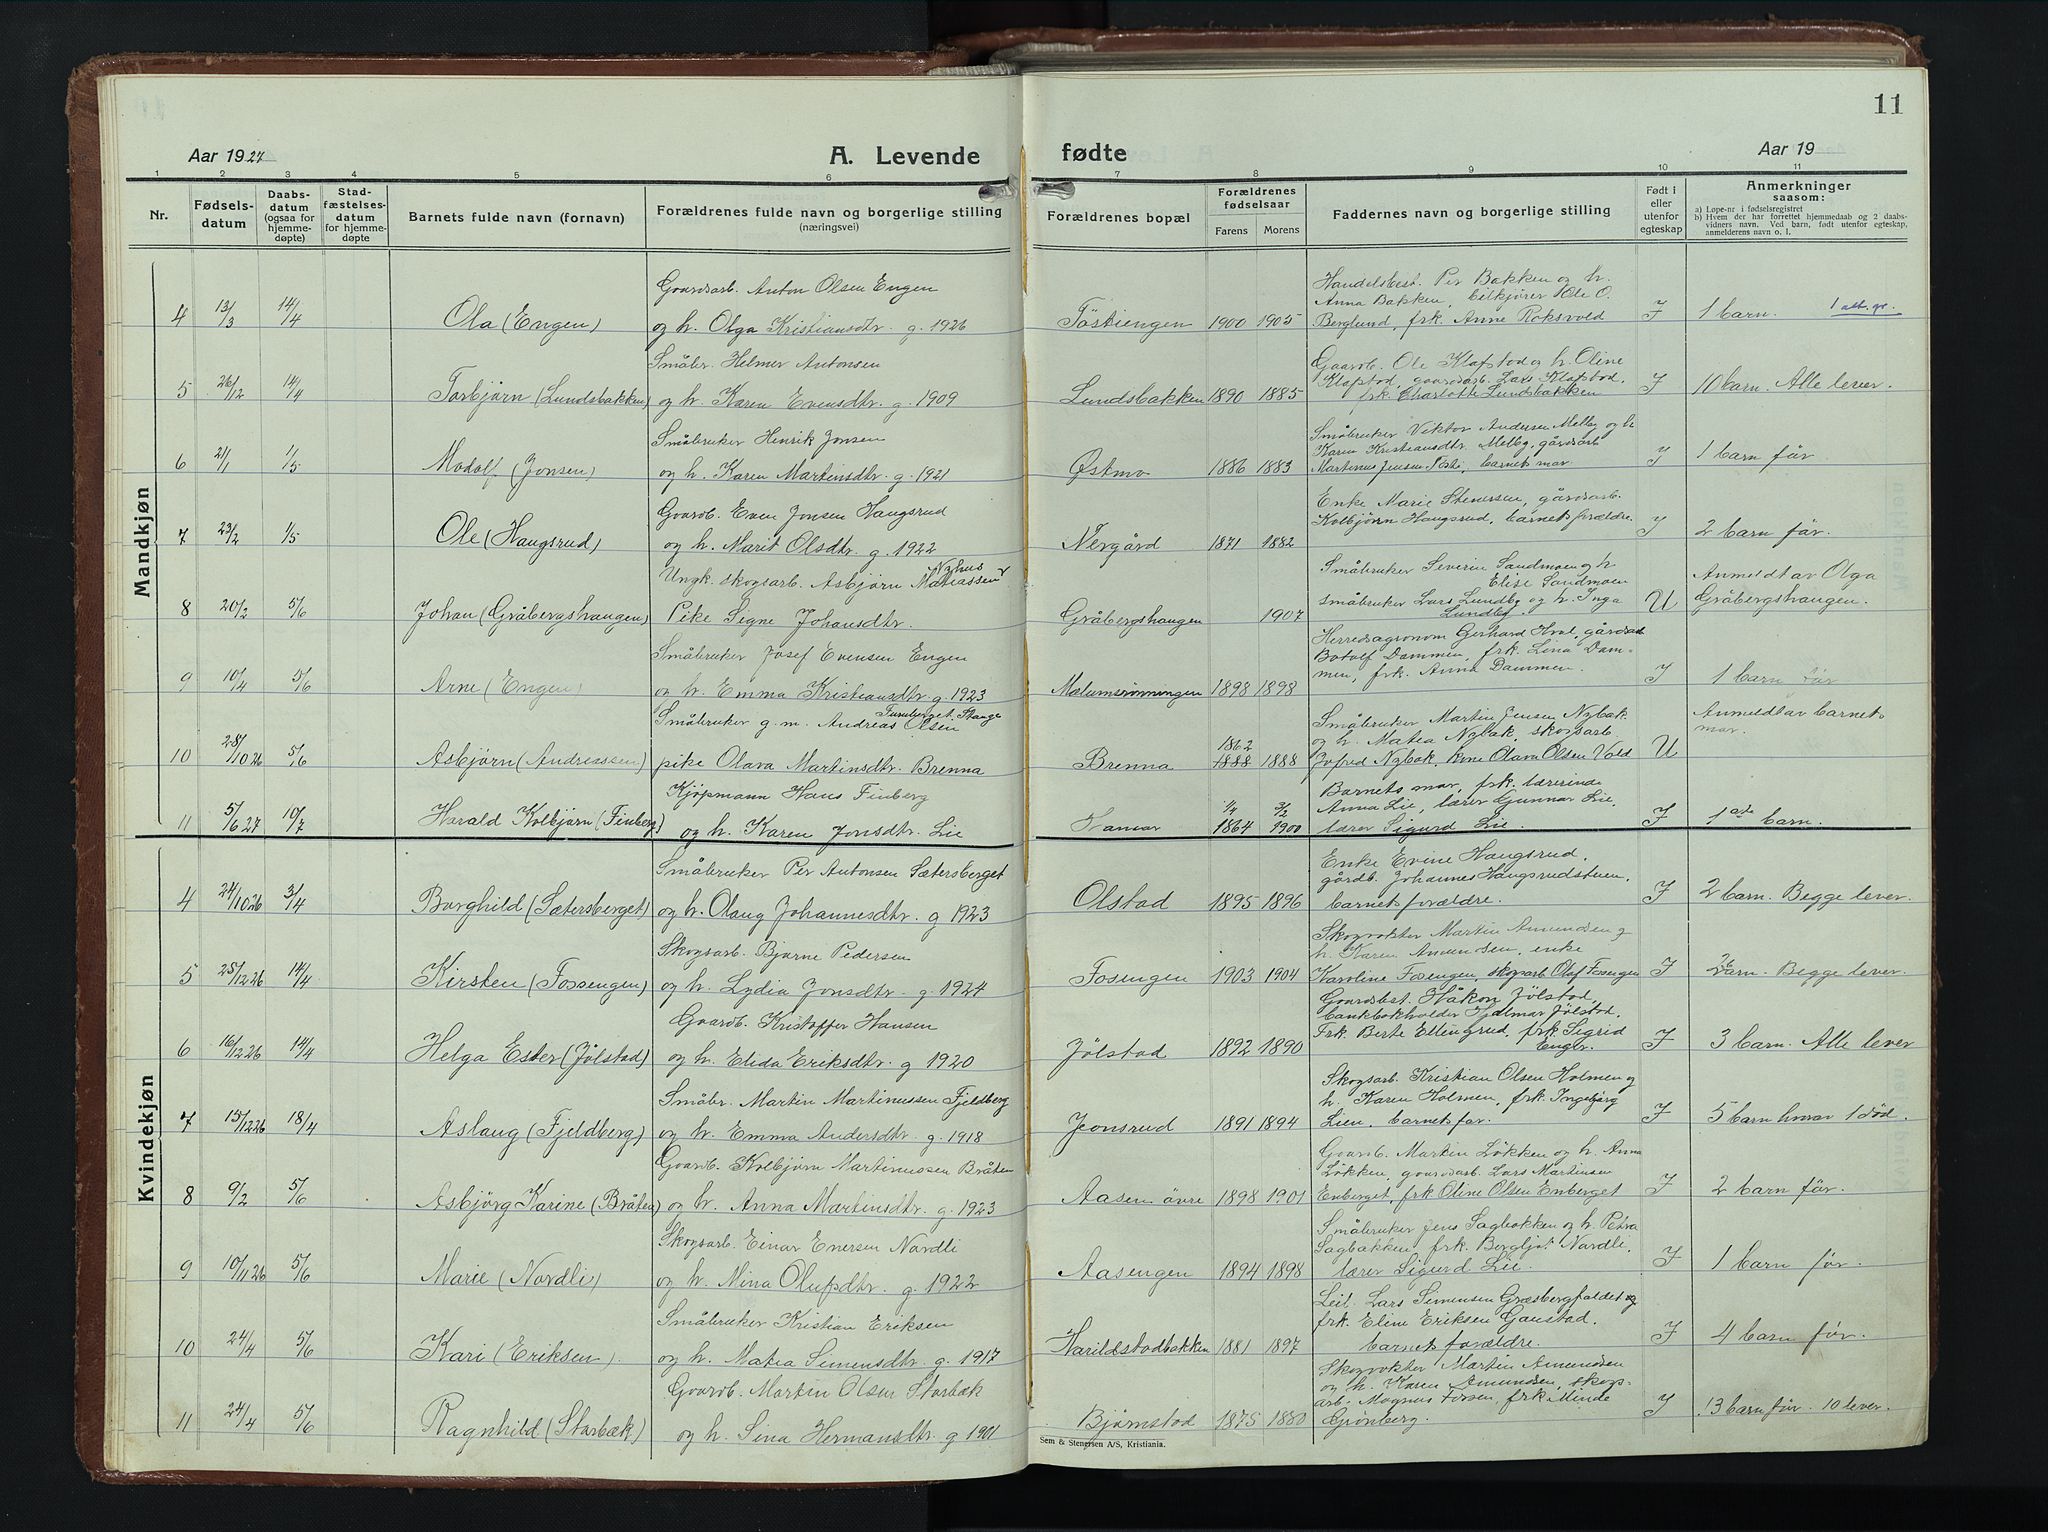 11
Aar 1927
A. Levende
fødte
Aar 19
1 2 3 4 5 6 7 8 9 10 11
Nr.
Fødsels-
datum
Daabs-
datum
(ogsaa for
hjemme-
døpte)
Stad-
fæstelses-
datum
for hjemme-
døpte
Barnets fulde navn (fornavn)
Forældrenes fulde navn og borgerlige stilling
(næringsvei)
Forældrenes bopæl
Forældrenes
fødselsaar
Farens Morens
Faddernes navn og borgerlige stilling
Født i
eller
utenfor
egteskap
Anmerkninger
saasom:
a) Løpe-nr i fødselsregistret
b) Hvem der har forrettet hjemmedaab og 2 daabs-
vidners navn. Ved barn, født utenfor egteskap,
anmelderens navn o. l.
Mandkjøn
Gaardsarb. Anton Olsen Engen
Handelsbest. Per Bakken og h.
Anna Bakken, bilkjører Ole O.
4 13/3 14/4 Ola (Engen) og h. Olga Kristiansdtr. g. 1926 Töstiengen 1900 1905 Berglund, frk. Anne Roksvold I 1 barn.
Småbr. Helmer Antonsen
Gaardb. Ole Klafstad og h. Oline
Klafstad, gaardsarb. Lars Klafstad,
5 26/12 14/4 Torbjørn (Lundsbakken) og h. Karen Evensdtr. g. 1909 Lundsbakken 1890 1885 frk. Charlotte Lundsbakken I 10 barn. Alle lever.
Småbruker Henrik Jonsen
Småbruker Viktor Andersen Melby og h.
Karen Kristiansdtr. Melby, gårdsarb.
6 21/1 1/5 Modolf (Jonsen) og h. Karen Martinsdtr. g. 1921 Østmo 1886 1883 Martinus Jensen, barnets mor. I 1 barn før.
Gaardb. Even Jonsen Haugsrud
Enke Marie Stenersen, gårdsarb.
Kolbjørn Haugsrud, barnets forældre.
7 23/2 1/5 Ole (Haugsrud) og h. Marit Olsdtr. g. 1922 Nergård 1871 1882 I 2 barn før.
Ungk. skogsarb. Asbjørn Matiassen Nyhus
Småbruker Severin Sandmoen og h.
Elise Sandmoen
Anmeldt av Olga
8 20/2 5/6 Johan (Gråbergshaugen) Pike Signe Johansdtr. Gråbergshaugen 1907 småbruker Lars Lundby og h. Inga
Lundby. U Gråbergshaugen.
Småbruker Josef Evensen Engen
Herredsagronom Gerhard Hval, gårdsarb.
Botolf Dammen, frk. Lina Dam-
9 10/4 5/6 Arne (Engen) og h. Emma Kristiansdtr. g. 1923 Mælumsrønningen 1898 1898 men, frk. Anna Dammen. I 1 barn før
Småbruker g. m. Andreas Olsen Furuberget Stange
Småbruker Martin Jensen Nybak
og h. Matea Nybak, skogsarb.
Anmeldt av barnets
mor.
10 28/10 26 5/6 Asbjørn (Andreassen) pike Olava Martinsdtr. Brenna Brenna 1862 1888 1888 Nybak, kone Olava Olsen Vold U
Kjøpmann Hans Finberg
Barnets mor, frk. lærerinde
Anna Lie, lærer Gunnar Lie,
11 5/6 27 10/7 Harald Kolbjørn (Finberg) og h. Karen Jonsdtr. Lie Hamar 1/4 1864 3/2 1900 lærer Sigurd Lie. I 1ste barn.
Kvindekjøn
Småbruker Per Antonsen Sætersberget
Enke Evine Haugsrud,
gårdb. Johannes Haugsrudstuen,
4 24/10 26 3/4 Borghild (Sætersberget) og h. Olaug Johannesdtr. g. 1923 Olstad 1895 1896 barnets forældre. I 2 barn. Begge lever.
Skogsarb. Bjarne Pedersen
Skogvokter Martin Amundsen og
h. Karen Amundsen, enke
5 25/12 26 14/4 Kirsten (Fossengen) og h. Lydia Jonsdtr. g. 1924 Fosengen 1903 1904 Karoline Fosengen, skogsarb. Olaf Fossengen I 2 barn. Begge lever.
Gaardb. Kristoffer Hansen
Gaardbest. Håkon Jølstad,
bankbokholder Hjalmar Jølstad,
Frk. Berte Ellengrud, frk. Sigrid
Enger.
6 16/12 26 14/4 Helga Ester (Jølstad) og h. Elida Eriksdtr. g. 1920 Jølstad 1892 1890 I 3 barn. Alle lever
Småbr. Martin Martinussen Fjeldberg
Skogsarb. Kristian Olsen Holmen og
h. Karen Holmen, frk. Ingebjørg
7 15/12 26 18/4 Aslaug (Fjeldberg) og h. Emma Andersdtr. g. 1918 Jeonsrud 1891 1894 Lien, barnets far. I 5 barn hvorav 1 død.
Gaardb. Kolbjørn Martinussen Bråten
Gaardb. Martin Løkken og h. Anna
Løkken, gaardsarb. Lars Martinsen
8 9/2 5/6 Asbjörg Karine (Bråten) og h. Anna Martinsdtr. g. 1923 Aasen övre 1898 1901 Enberget, frk. Oline Olsen Enberget I 2 barn før.
Skogsarb. Einar Enersen Nordli
Småbruker Jens Sagbakken og h. Petra
Sagbakken, frk. Bergljot Nordli,
9 10/1 26 5/6 Marie (Nordli) og h. Mina Olufsdtr. g. 1922 Aasengen 1894 1898 lærer Sigurd Lie. I 1 barn før.
Småbruker Kristian Eriksen
Leil. Lars Simensen Græsbergfaldet og
frk. Eline Eriksen Gaustad,
10 24/4 5/6 Kari (Eriksen) og h. Matea Simensdtr. g. 1917 Harildstadbakken 1881 1897 barnets forældre. I 4 barn før.
Gaardb. Martin Olsen Starbæk
Skogvokter Martin Amundsen
og h. Karen Amundsen, skogs-
arb. Magnus Forsen, frk. Minde
11 24/4 5/6 Ragnhild (Starbæk) og h. Sina Hermansdtr. g 1901 Bjørnstad 1875 1880 Grønberg. I 13 barn før. 10 lever.
Sem & Stenersen A/S, Kristiania.